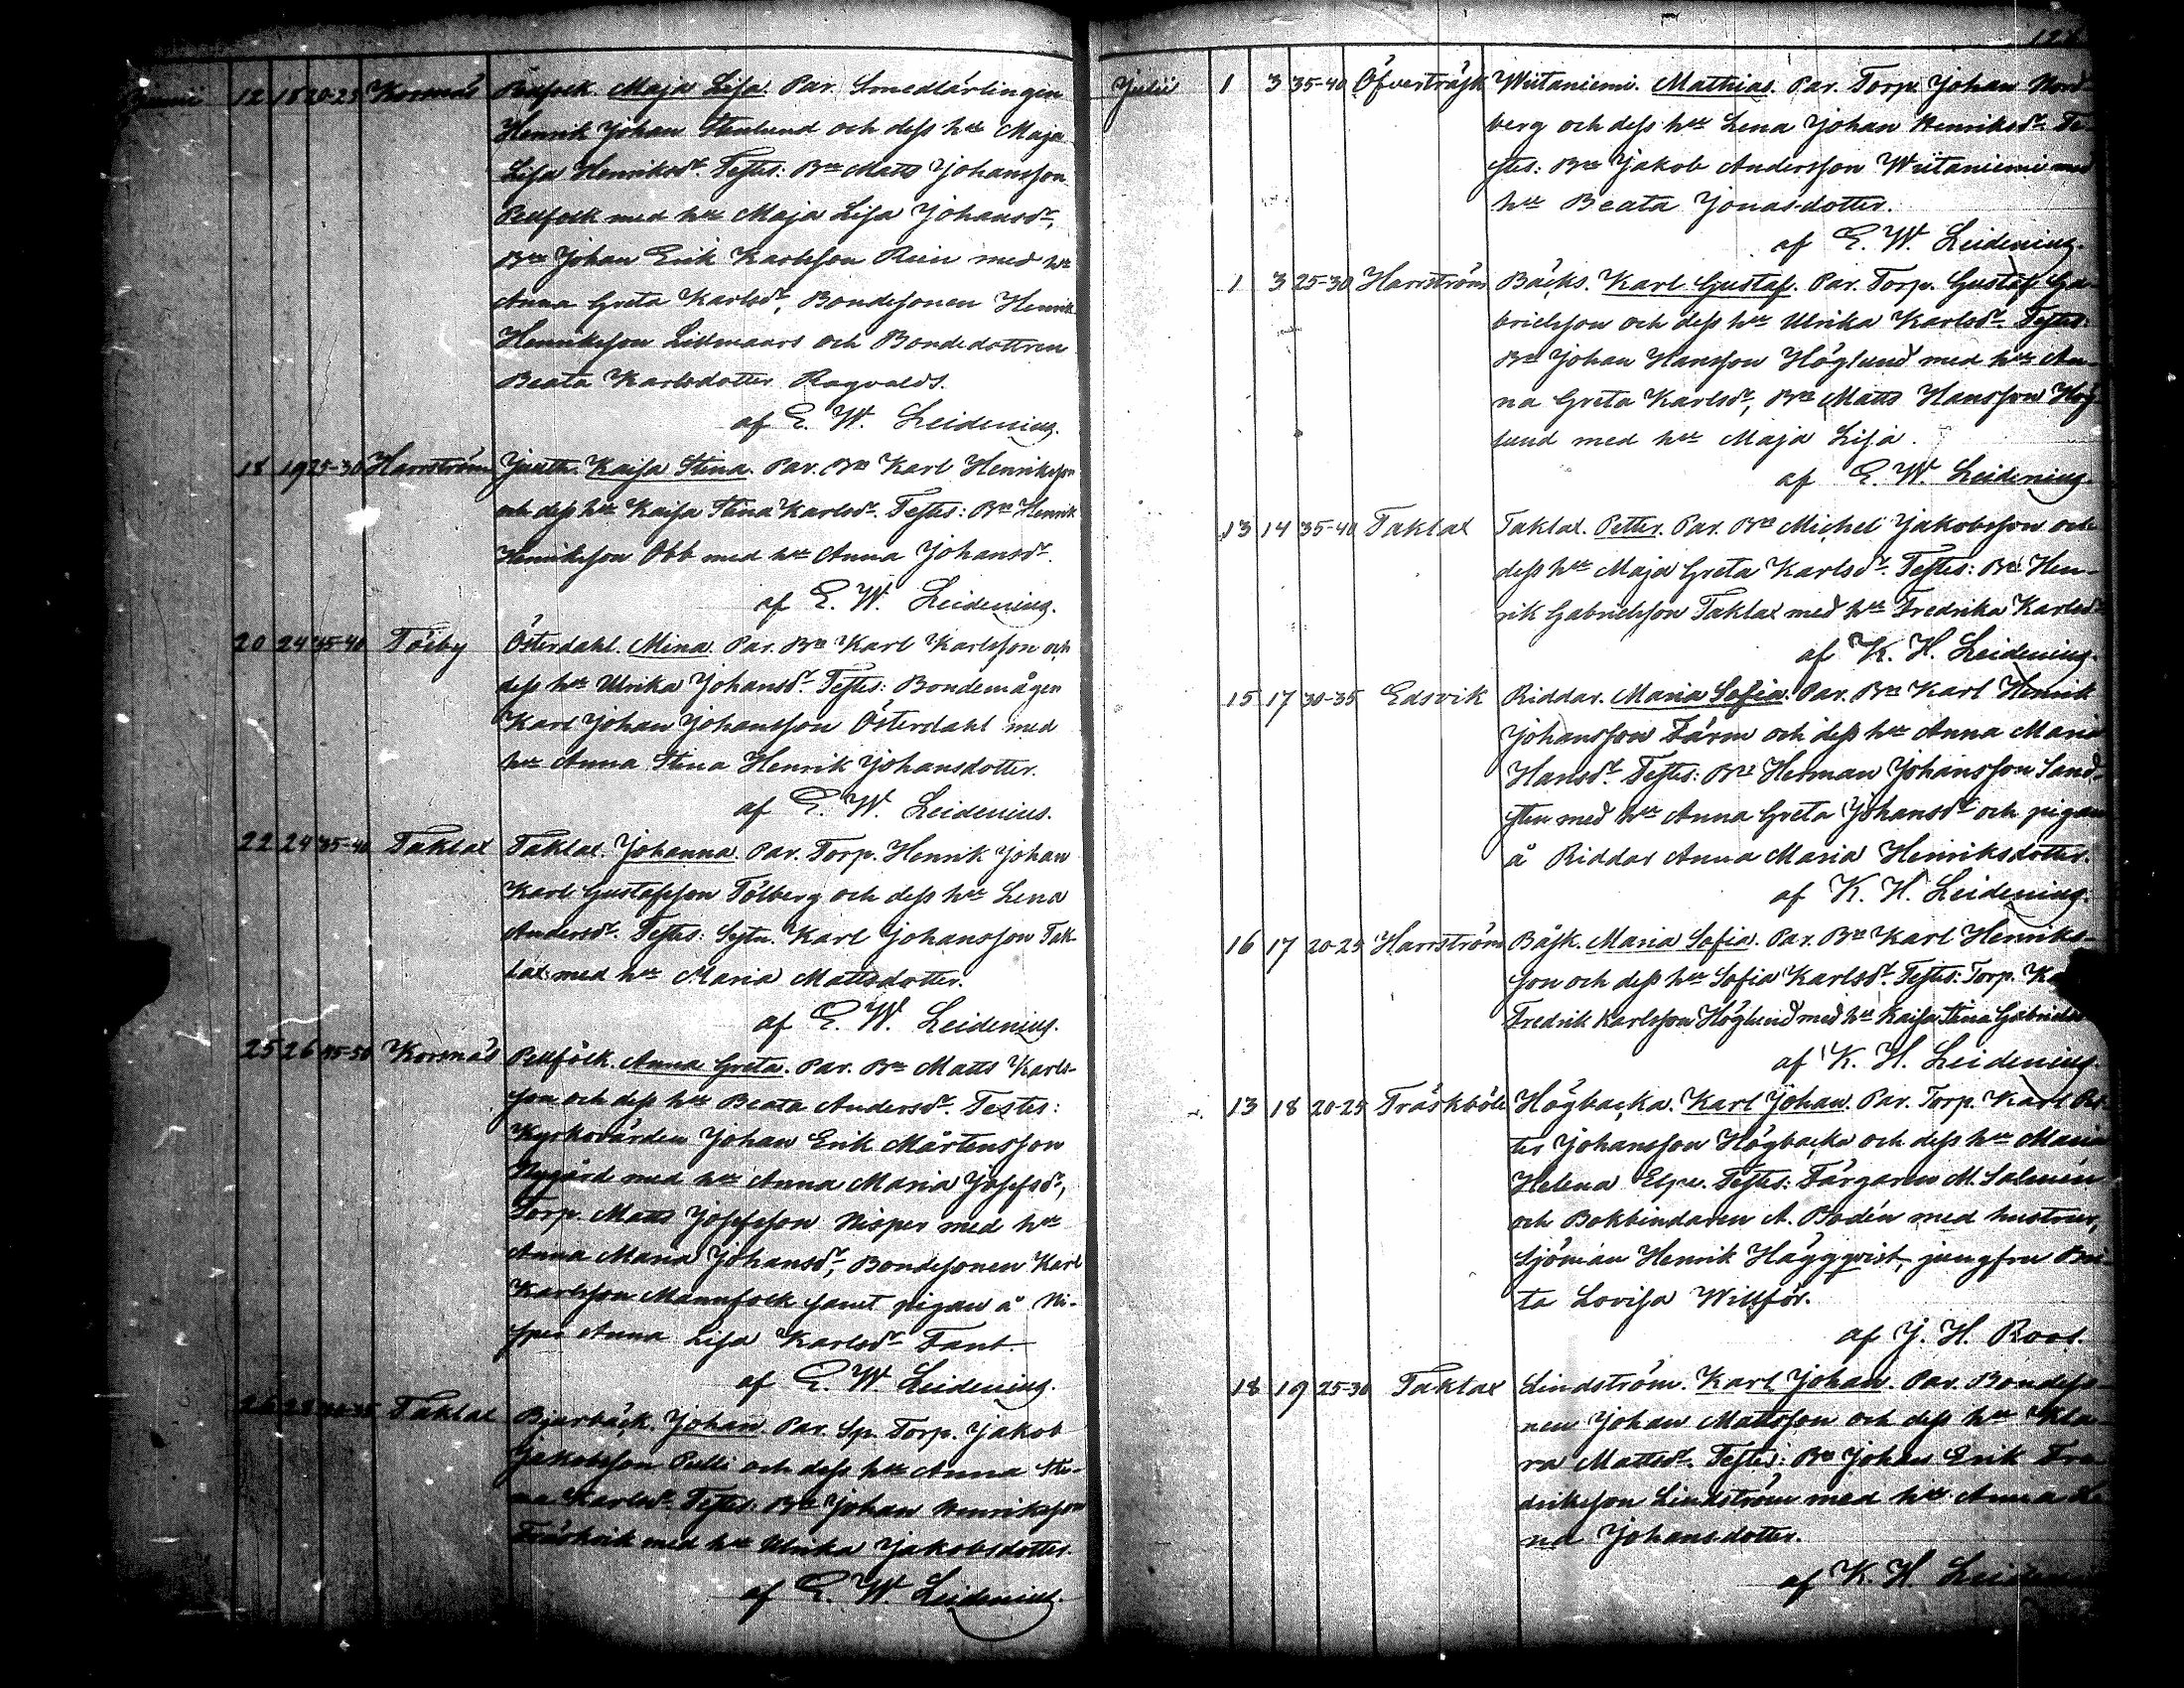 Junii 12 18 20-25 Korsnäs Pellfolk. Maja Lisa. Par. Smedlärlingen
Henrik Johan Stenlund och dess hu Maja
Lisa Henriksdr. Testes: Bn Matts Johansson
Pellfolk med hu Maja Lisa Johansdr,
Bn Johan Erik Karlsson Rein med hu
Anna Greta Karlsdr, Bondesonen Henrik
Henriksson Lidmans och Bondedottren
Beata Karlsdotter Ragvalds.
af E. W. Leidenius.
18 19 25-30 Harrström Juuth. Kaisa Stina. Par. Bn Karl Henriksson
och dess hu Kaisa Stina Karlsdr. Testes: Bn Henrik
Henriksson Obb med hu Anna Johansdr.
af E. W. Leidenius.
20 24 35-40 Töiby Österdahl. Mina. Par. Bn Karl Karlsson och
dess hu Ulrika Johansdr. Testes: Bondemågen
Karl Johan Johansson Österdahl med
hu Anna Stina Henrik Johansdotter.
af E. W. Leidenius.
22 24 35-40 Taklax Taklax. Johanna. Par. Torp. Henrik Johan
Karl Gustafsson Tölberg och dess hu Lena
Andersdr. Testes: Sytn. Karl Johansson Tak-
lax med hu Maria Mattsdotter.
af E. W. Leidenius.
25 26 45-50 Korsnäs Pellfolk. Anna Greta. Par. Bn Matts Karls-
son och dess hu Beata Andersdr. Testes:
Kyrkovärden Johan Erik Mårtensson
Nygård med hu Anna Maria Josefsdr,
Torp. Matts Josefsson Nisper med hu
Anna Maria Johansdr, Bondesonen Karl
Karlsson Mannfolk samt pigan å Ni-
sper Anna Lisa Karlsdr Fant.
af E. W. Leidenius.
26 28 Taklax Bjurbäck. Johan. Par. Sp. Torp. Jakob
Jakobsson Pelli och dess hu Anna Sti-
na Karlsdr. Testes: Bn Johan Henriksson
Träskvik med hu Ulrika Jakobsdotter.
af E. W. Leidenius.
Julii 1 3 35-40 Öfverträsk Wiitaniemi. Mathias. Par. Torp. Johan Nord-
berg och dess hu Lena Johan Henriksdr. Te-
stes: Bn Jakob Andersson Wiitaniemi med
hu Beata Jonasdotter.
af E. W. Leidenius.
1 3 25-30 Harrström Bäcks. Karl Gustaf. Par. Torp. Gustaf Ga-
brielsson och dess hu Ulrika Karlsdr. Testes:
Bn Johan Hansson Höglund med hu An-
na Greta Karlsdr, Bn Matts Hansson Hög-
lund med hu Maja Lisa.
af E. W. Leidenius.
13 14 35-40 Taklax Taklax. Petter. Par. Bn Michel Jakobsson och
dess hu Maja Greta Karlsdr. Testes: Bn Hen-
rik Gabrielsson Taklax med hu Fredrika Karlsdr
af K. H. Leidenius.
15 17 30-35 Edsvik Riddar. Maria Sofia. Par. Bn Karl Henrik
Johansson Färm och dess hu Anna Maria
Hansdr. Testes: Bn Herman Johansson Sand-
sten med hu Anna Greta Johansdr och pigan
å Riddar Anna Maria Henriksdotter.
af K. H. Leidenius.
16 17 20-25 Harrström Båsk. Maria Sofia. Par. Bn Karl Henriks-
son och dess hu Sofia Karlsdr. Testes: Torp. Ka
Fredrik Karlsson Höglund med hu Kaisa Stina Gabriels
af K. H. Leidenius.
13 18 20-25 Träskböle Högbacka. Karl Johan. Par. Torp. Karl Pet-
ter Johansson Högbacka och dess hu Maria
Helena Elge. Testes: Färgaren M. Salenén
och Bokbindaren A. Bodén med hustrur,
Sjöman Henrik Häggqvist, jungfru Bri-
ta Lovisa Willför.
af J. H. Roos.
18 19 25-30 Taklax Lindström. Karl Johan. Par. Bondeso-
nen Johan Mattsson och dess hu Kla-
ra Mattsdr. Testes: Bn Johan Erik Fre-
driksson Lindström med hu Anna Le-
na Johansdotter.
af K. H. Leidenius